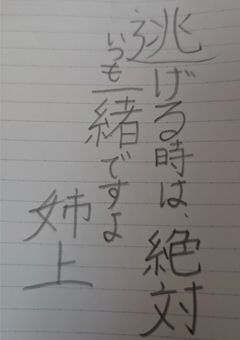 逃げる時は、絶対
いつも一緒ですよ
姉上